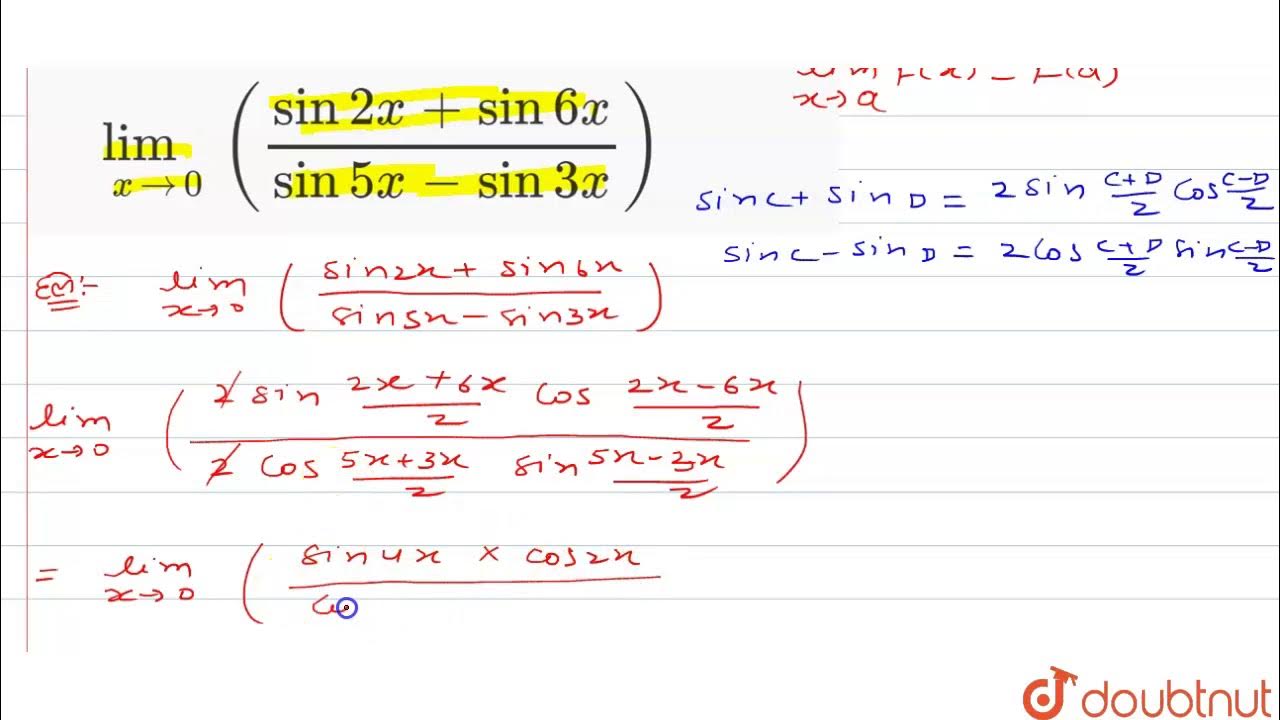 lim x→0 (sin 2x + sin 6x / sin 5x − sin 3x)
lim x→a f(x) = f(a)
sin C + sin D = 2 sin C+D/2 cos C-D/2
sin C - sin D = 2 cos C+D/2 sin C-D/2
हल:- lim x→0 (sin2x + sin6x / sin5x - sin3x)
lim x→0 (2 sin 2x+6x/2 cos 2x-6x/2 / 2 cos 5x+3x/2 sin 5x-3x/2)
= lim x→0 (sin4x × cos2x / co
doubtnut